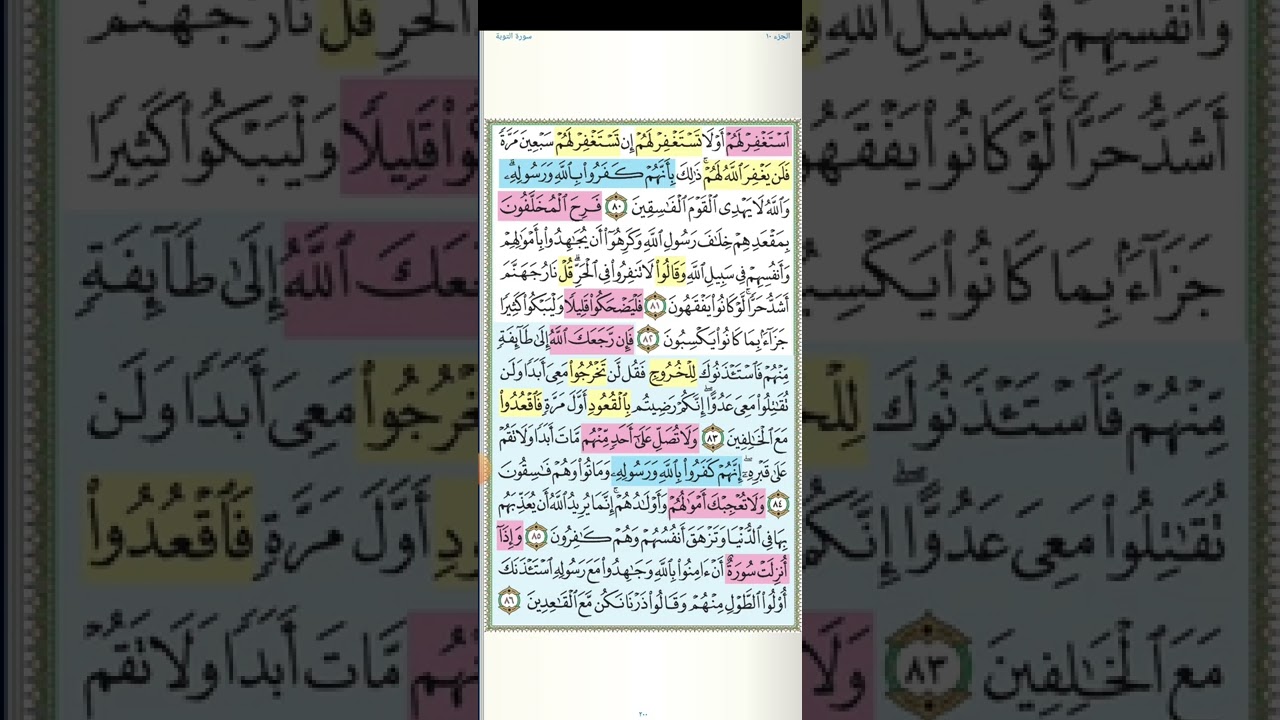 الجزء ١٠
سورة التوبة
ٱسْتَغْفِرْ لَهُمْ أَوْ لَا تَسْتَغْفِرْ لَهُمْ إِن تَسْتَغْفِرْ لَهُمْ سَبْعِينَ مَرَّةً
فَلَن يَغْفِرَ ٱللَّهُ لَهُمْ ۚ ذَٰلِكَ بِأَنَّهُمْ كَفَرُوا۟ بِٱللَّهِ وَرَسُولِهِۦ ۗ
وَٱللَّهُ لَا يَهْدِى ٱلْقَوْمَ ٱلْفَـٰسِقِينَ ٨٠ فَرِحَ ٱلْمُخَلَّفُونَ
بِمَقْعَدِهِمْ خِلَـٰفَ رَسُولِ ٱللَّهِ وَكَرِهُوٓا۟ أَن يُجَـٰهِدُوا۟ بِأَمْوَٰلِهِمْ
وَأَنفُسِهِمْ فِى سَبِيلِ ٱللَّهِ وَقَالُوا۟ لَا تَنفِرُوا۟ فِى ٱلْحَرِّ ۗ قُلْ نَارُ جَهَنَّمَ
أَشَدُّ حَرًّا ۚ لَّوْ كَانُوا۟ يَفْقَهُونَ ٨١ فَلْيَضْحَكُوا۟ قَلِيلًا وَلْيَبْكُوا۟ كَثِيرًا
جَزَآءًۢ بِمَا كَانُوا۟ يَكْسِبُونَ ٨٢ فَإِن رَّجَعَكَ ٱللَّهُ إِلَىٰ طَآئِفَةٍ
مِّنْهُمْ فَٱسْتَـْٔذَنُوكَ لِلْخُرُوجِ فَقُل لَّن تَخْرُجُوا۟ مَعِىَ أَبَدًا وَلَن
تُقَـٰتِلُوا۟ مَعِىَ عَدُوًّا ۖ إِنَّكُمْ رَضِيتُم بِٱلْقُعُودِ أَوَّلَ مَرَّةٍ فَٱقْعُدُوا۟
مَعَ ٱلْخَـٰلِفِينَ ٨٣ وَلَا تُصَلِّ عَلَىٰٓ أَحَدٍ مِّنْهُم مَّاتَ أَبَدًا وَلَا تَقُمْ
عَلَىٰ قَبْرِهِۦٓ ۖ إِنَّهُمْ كَفَرُوا۟ بِٱللَّهِ وَرَسُولِهِۦ وَمَاتُوا۟ وَهُمْ فَـٰسِقُونَ
٨٤ وَلَا تُعْجِبْكَ أَمْوَٰلُهُمْ وَأَوْلَـٰدُهُمْ ۚ إِنَّمَا يُرِيدُ ٱللَّهُ أَن يُعَذِّبَهُم
بِهَا فِى ٱلدُّنْيَا وَتَزْهَقَ أَنفُسُهُمْ وَهُمْ كَـٰفِرُونَ ٨٥ وَإِذَآ
أُنزِلَتْ سُورَةٌ أَنْ ءَامِنُوا۟ بِٱللَّهِ وَجَـٰهِدُوا۟ مَعَ رَسُولِهِ ٱسْتَـْٔذَنَكَ
أُو۟لُوا۟ ٱلطَّوْلِ مِنْهُمْ وَقَالُوا۟ ذَرْنَا نَكُن مَّعَ ٱلْقَـٰعِدِينَ ٨٦
٢٠٠